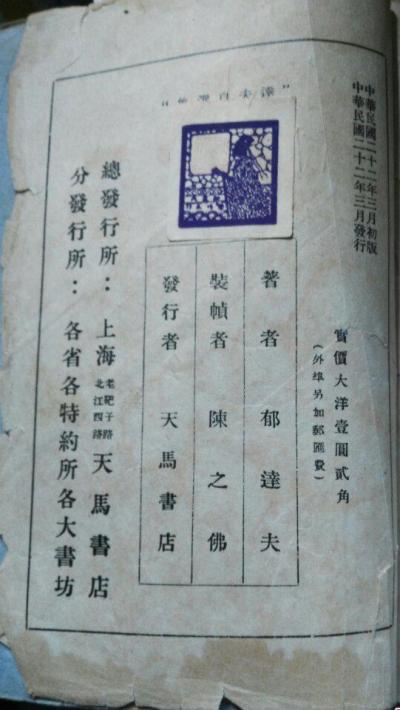 中華民國二十二年三月初版
中華民國二十二年三月發行
實價大洋壹圓貳角
(外埠另加郵匯費)
著者 郁達夫
裝幀者 陳之佛
發行者 天馬書店
總發行所：上海 老靶子路北江西路 天馬書店
分發行所：各省各特約所各大書坊